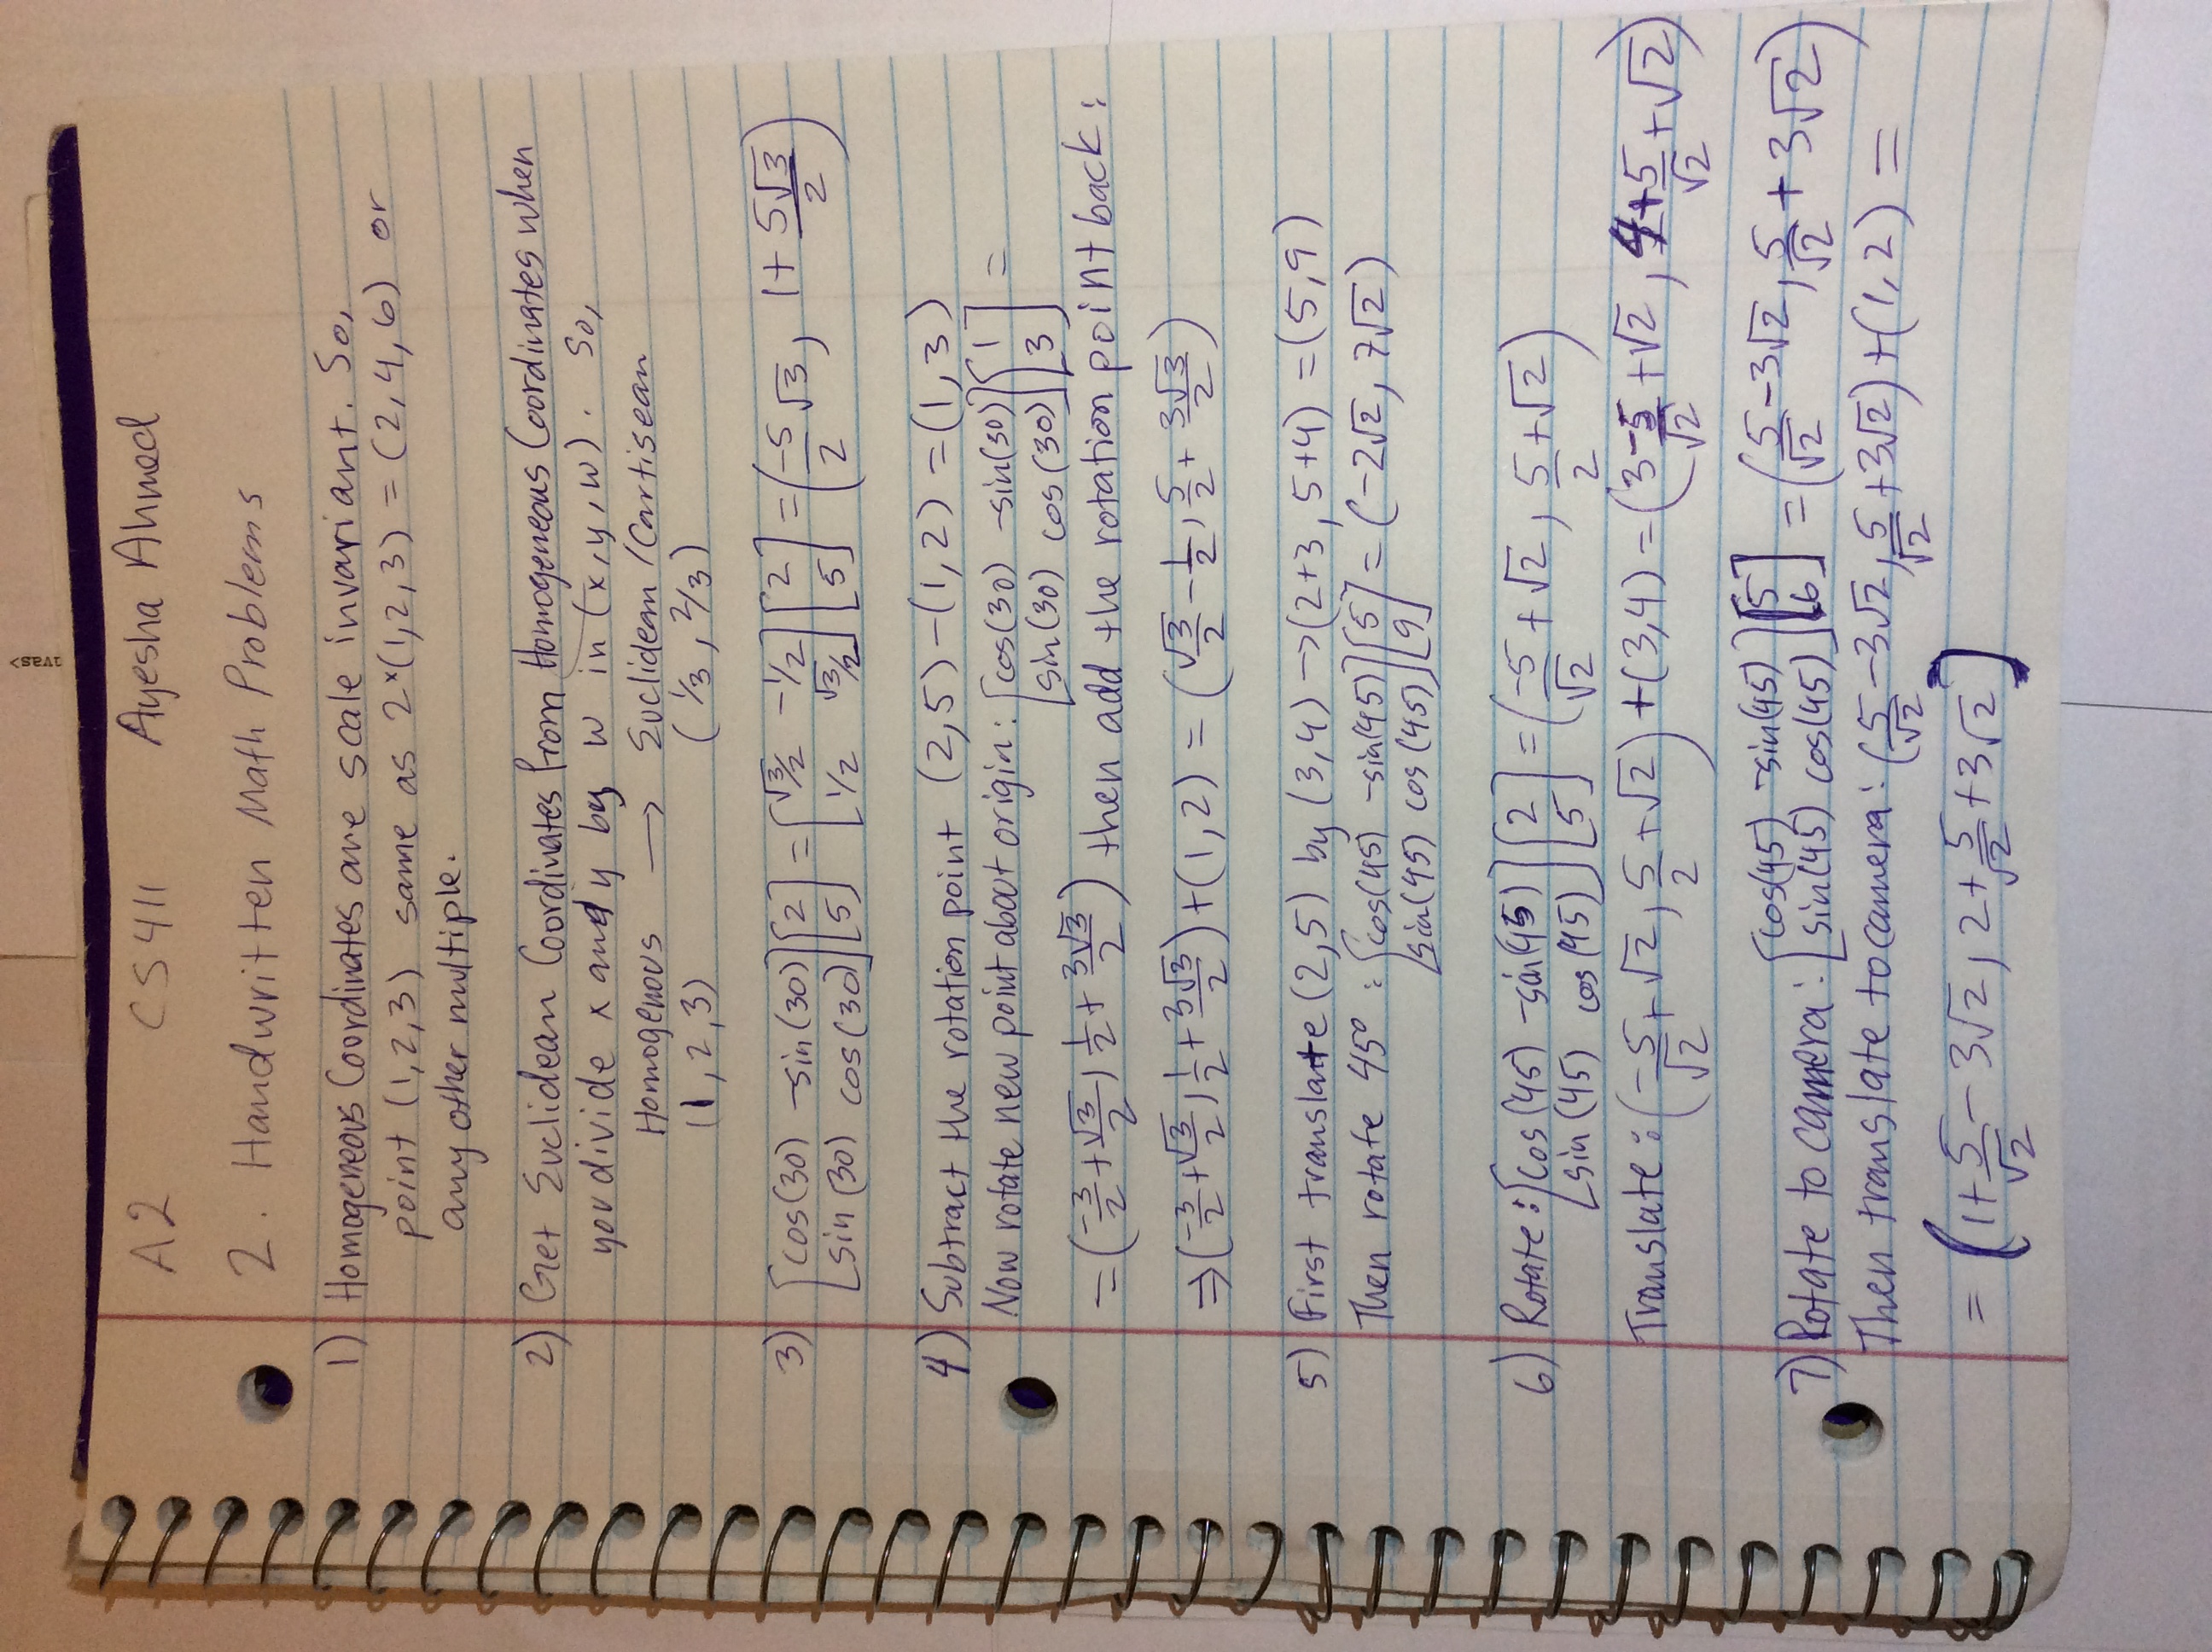 ıvas>
A2 CS411 Ayesha Ahmed
2. Handwritten Math Problems
1) Homogeneous Coordinates are scale invariant. So,
point (1,2,3) same as 2*(1,2,3) = (2,4,6) or
any other multiple.
2) Get Euclidean Coordinates from Homogeneous Coordinates when
you divide x and y by w in (x,y,w). So,
Homogenous → Euclidean / Cartisean
(1,2,3) (1/3, 2/3)
3) [cos(30) -sin(30)] [2] = [√3/2 -1/2] [2] = (-5/2 √3, 1+ 5√3/2)
[sin(30) cos(30)] [5] [1/2 √3/2] [5]
4) Subtract the rotation point (2,5)-(1,2) = (1,3)
Now rotate new point about origin: [cos(30) -sin(30)] [1] =
[sin(30) cos(30)] [3]
= (-3/2 + √3/2, 1/2 + 3√3/2) then add the rotation point back:
⇒ (-3/2 + √3/2, 1/2 + 3√3/2) + (1,2) = (√3/2 - 1/2, 5/2 + 3√3/2)
5) First translate (2,5) by (3,4) → (2+3, 5+4) = (5,9)
Then rotate 45° : [cos(45) -sin(45)] [5] = (-2√2, 7√2)
[sin(45) cos(45)] [9]
6) Rotate: [cos(45) -sin(45)] [2] = (-5/√2 + √2, 5/2 + √2)
[sin(45) cos(45)] [5]
Translate: (-5/√2 + √2, 5/2 + √2) + (3,4) = (3-5/√2 + √2, 4+5/√2 + √2)
7) Rotate to camera: [cos(45) -sin(45)] [5] = (5/√2 - 3√2, 5/√2 + 3√2)
[sin(45) cos(45)] [6]
Then translate to camera: (5/√2 - 3√2, 5/√2 + 3√2) + (1,2) =
= (1+ 5/√2 - 3√2, 2+ 5/√2 + 3√2)